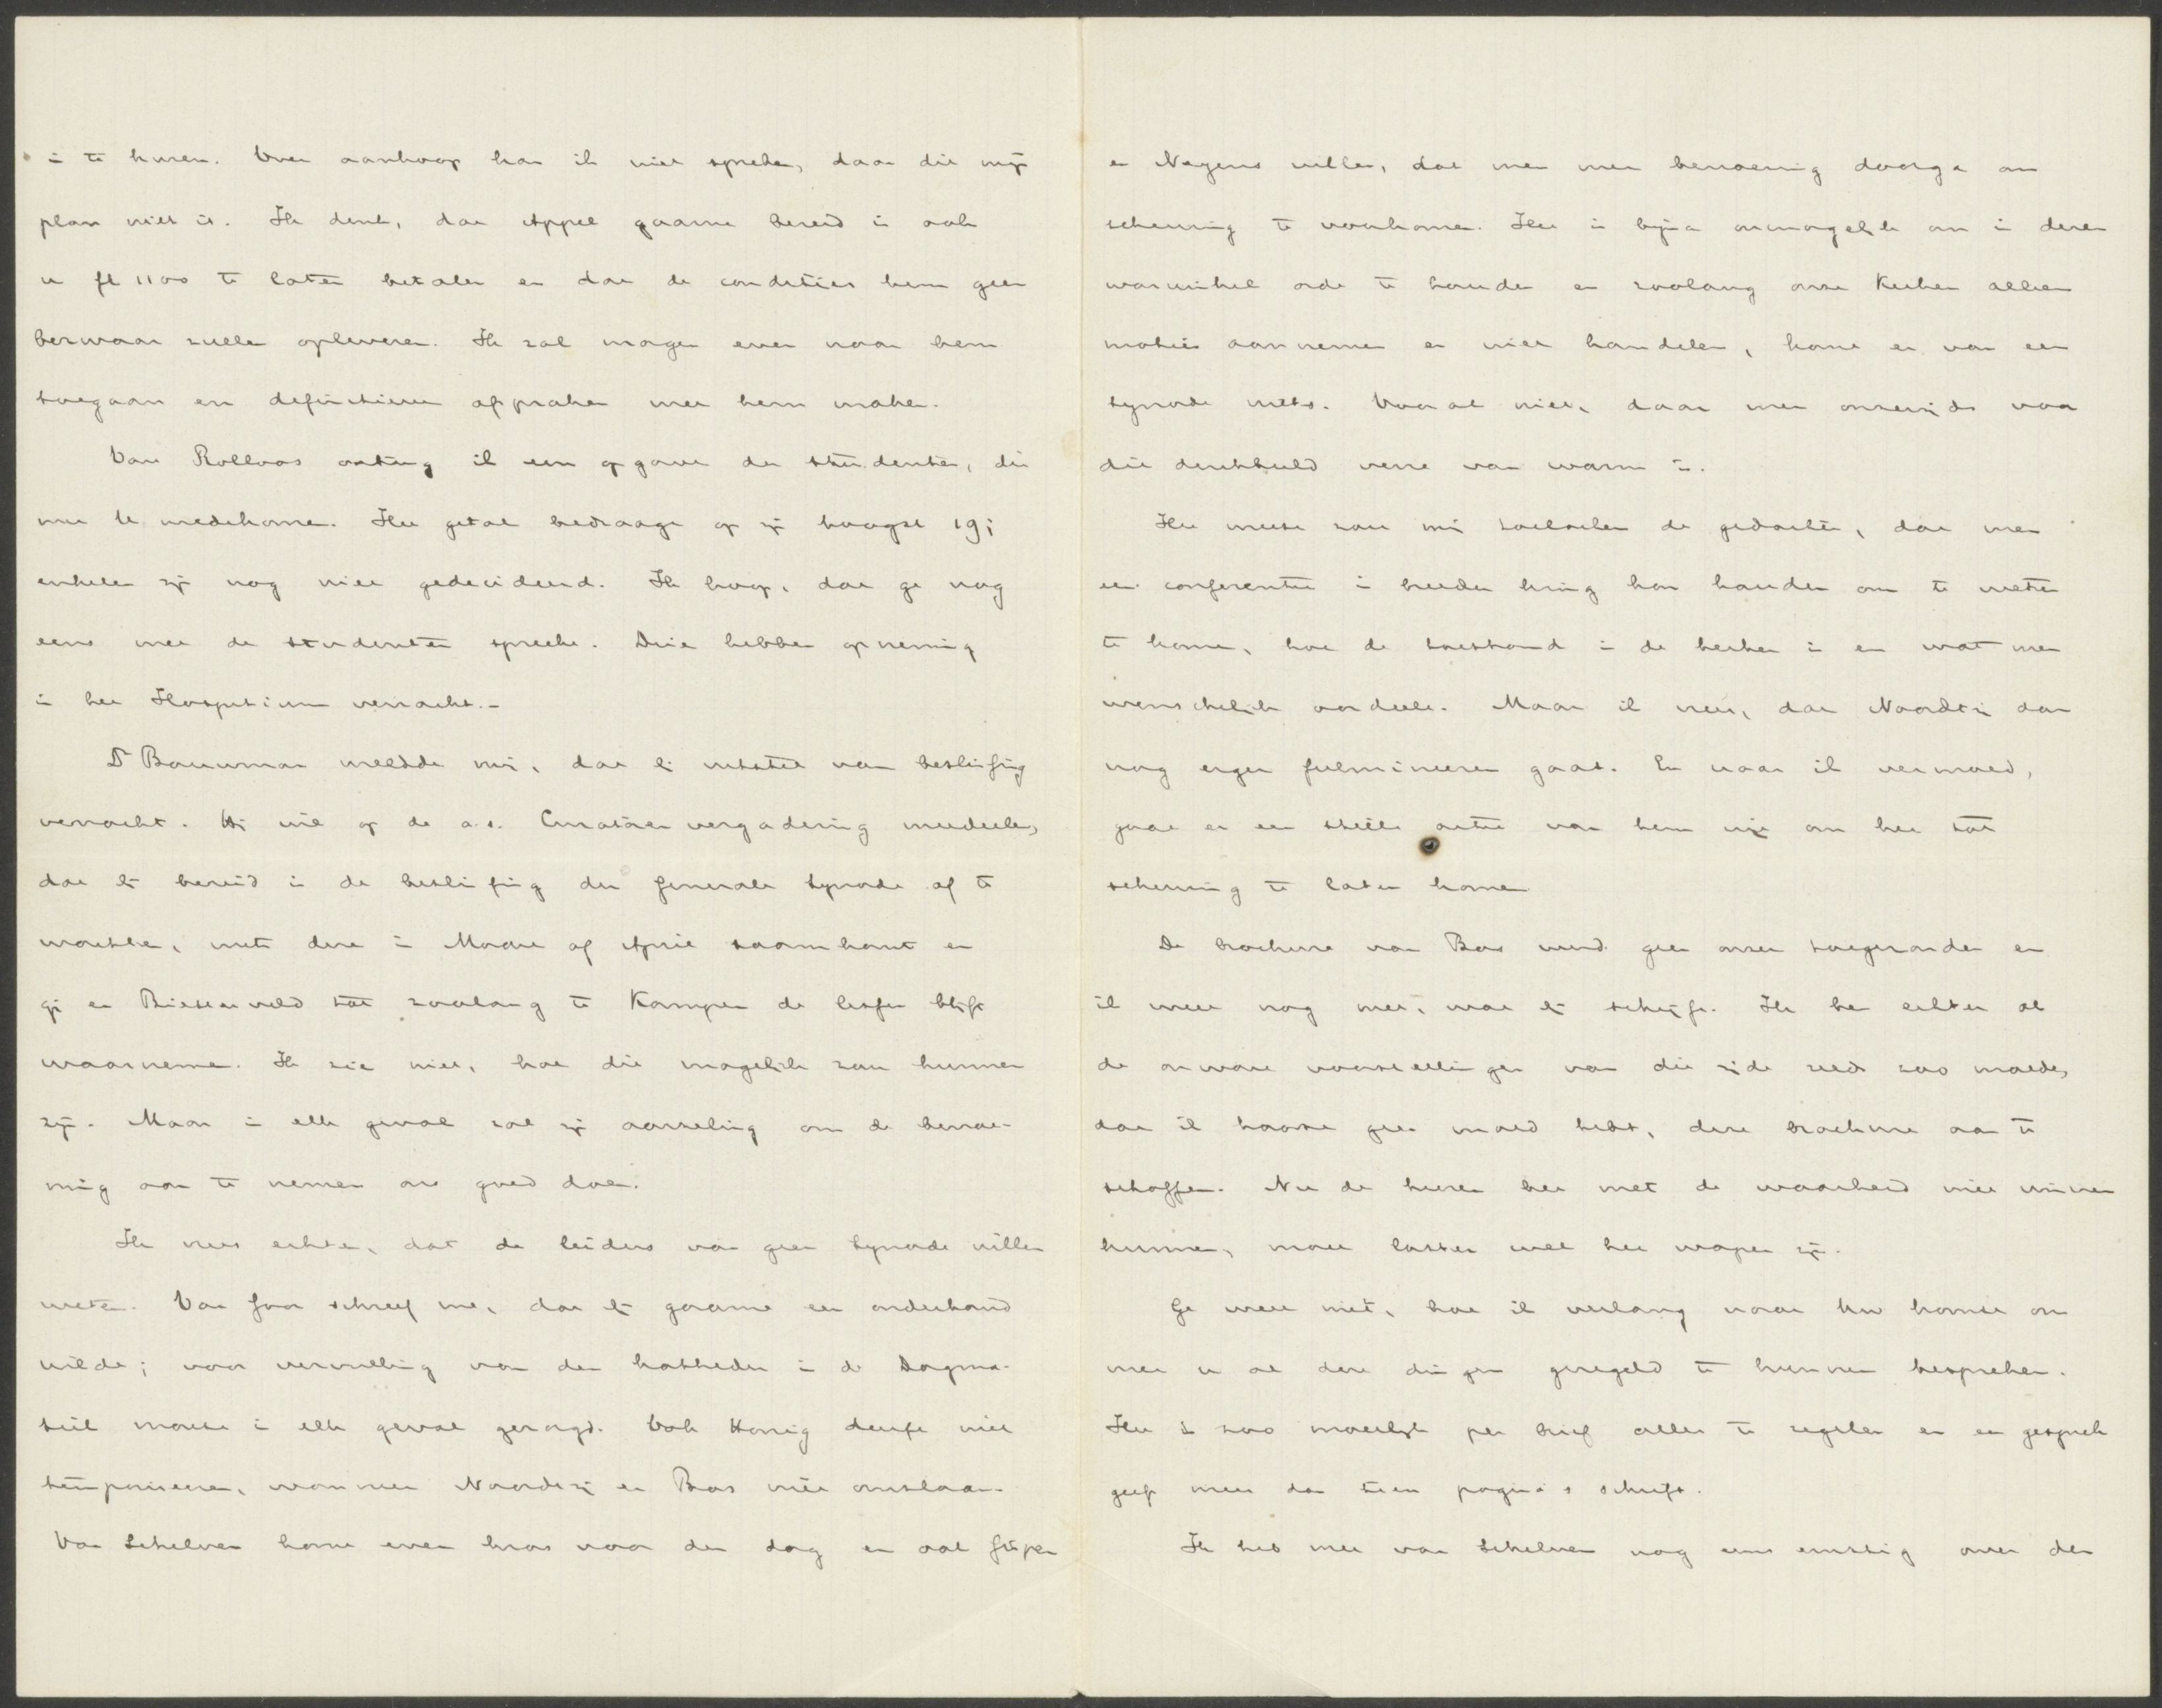 in te huren. Over aankoop kan ik niet spreken, daar dit mijn
plan niet is. Ik denk, dat Appel gaarne bereid is ook
u fl 1100 te laten betalen en dat de condities hem geen
bezwaar zullen opleveren. Ik zal morgen even naar hem
toegaan en definitieve afspraken met hem maken.
Van Rolloos ontving ik een opgave der studenten, die
met U medekomen. Het getal bedraagt op zijn hoogst 19;
enkelen zijn nog niet gedecideerd. Ik hoop, dat ge nog
eens met de studenten spreekt. Drie hebben opneming
in het Hospitium verzocht.-
Ds Bouwman meldde mij, dat hij uitstel van beslissing
verzocht. Hij wil op de a.s. Curatorenvergadering meedeelen,
dat hij bereid is de beslissing der Generale Synode af te
wachten, mits deze in Maart of April saamkomt en
gij en Biesterveld tot zoolang te Kampen de lessen blijft
waarnemen. Ik zie niet, hoe dit mogelijk zou kunnen
zijn. Maar in elk geval zal zijn aarzeling om de benoe-
ming aan te nemen ons goed doen.
Ik vrees echter, dat de leiders van geen Synode willen
weten. Van Goor schreef me, dat hij gaarne een onderhoud
wilde; voor vervulling van den katheder in de Dogma-
tiek moest in elk geval gezorgd. Ook Honig durft niet
temporiseeren, wanneer Noordtzij en Bos niet omslaan.
Van Schelven komt even kras voor den dag en ook Gispen
en Neyens willen, dat men met benoeming doorga om
scheuring te voorkomen. Het is bijna onmogelijk om in dezen
warwinkel orde te houden en zoolang onze Kerken alleen
moties aannemen en niet handelen, komt er van een
Synode niets. Vooral niet, daar men onzerzijds voor
die denkbeeld verre van warm is.
Het meest zou mij toelachen de gedachte, dat men
een conferentie in breeder kring kon houden om te weten
te komen, hoe de toestand in de kerken is en wat men
wenschelijk oordeelt. Maar ik vrees, dat Noordtzij dan
nog erger fulmineeren gaat. En naar ik vermoed,
gaat er een stille actie van hem uit om het tot
scheuring te laten komen
De brochure van Bos werd geen onzer toegezonden en
ik weet nog niet, wat hij schrijft. Ik ben echter al
de onware voorstellingen van die zijde reeds zoo moede,
dat ik haast geen moed heb, deze brochure aan te
schaffen. Nu de heeren het met de waarheid niet winnen
kunnen, moet laster wel het wapen zijn.
Ge weet niet, hoe ik verlang naar Uw komst om
met u al deze dingen geregeld te kunnen bespreken.
Het is zoo moeilijk per brief alles te regelen en een gesprek
geeft meer dan tien pagina's schrift.
Ik heb met van Schelven nog eens ernstig over den